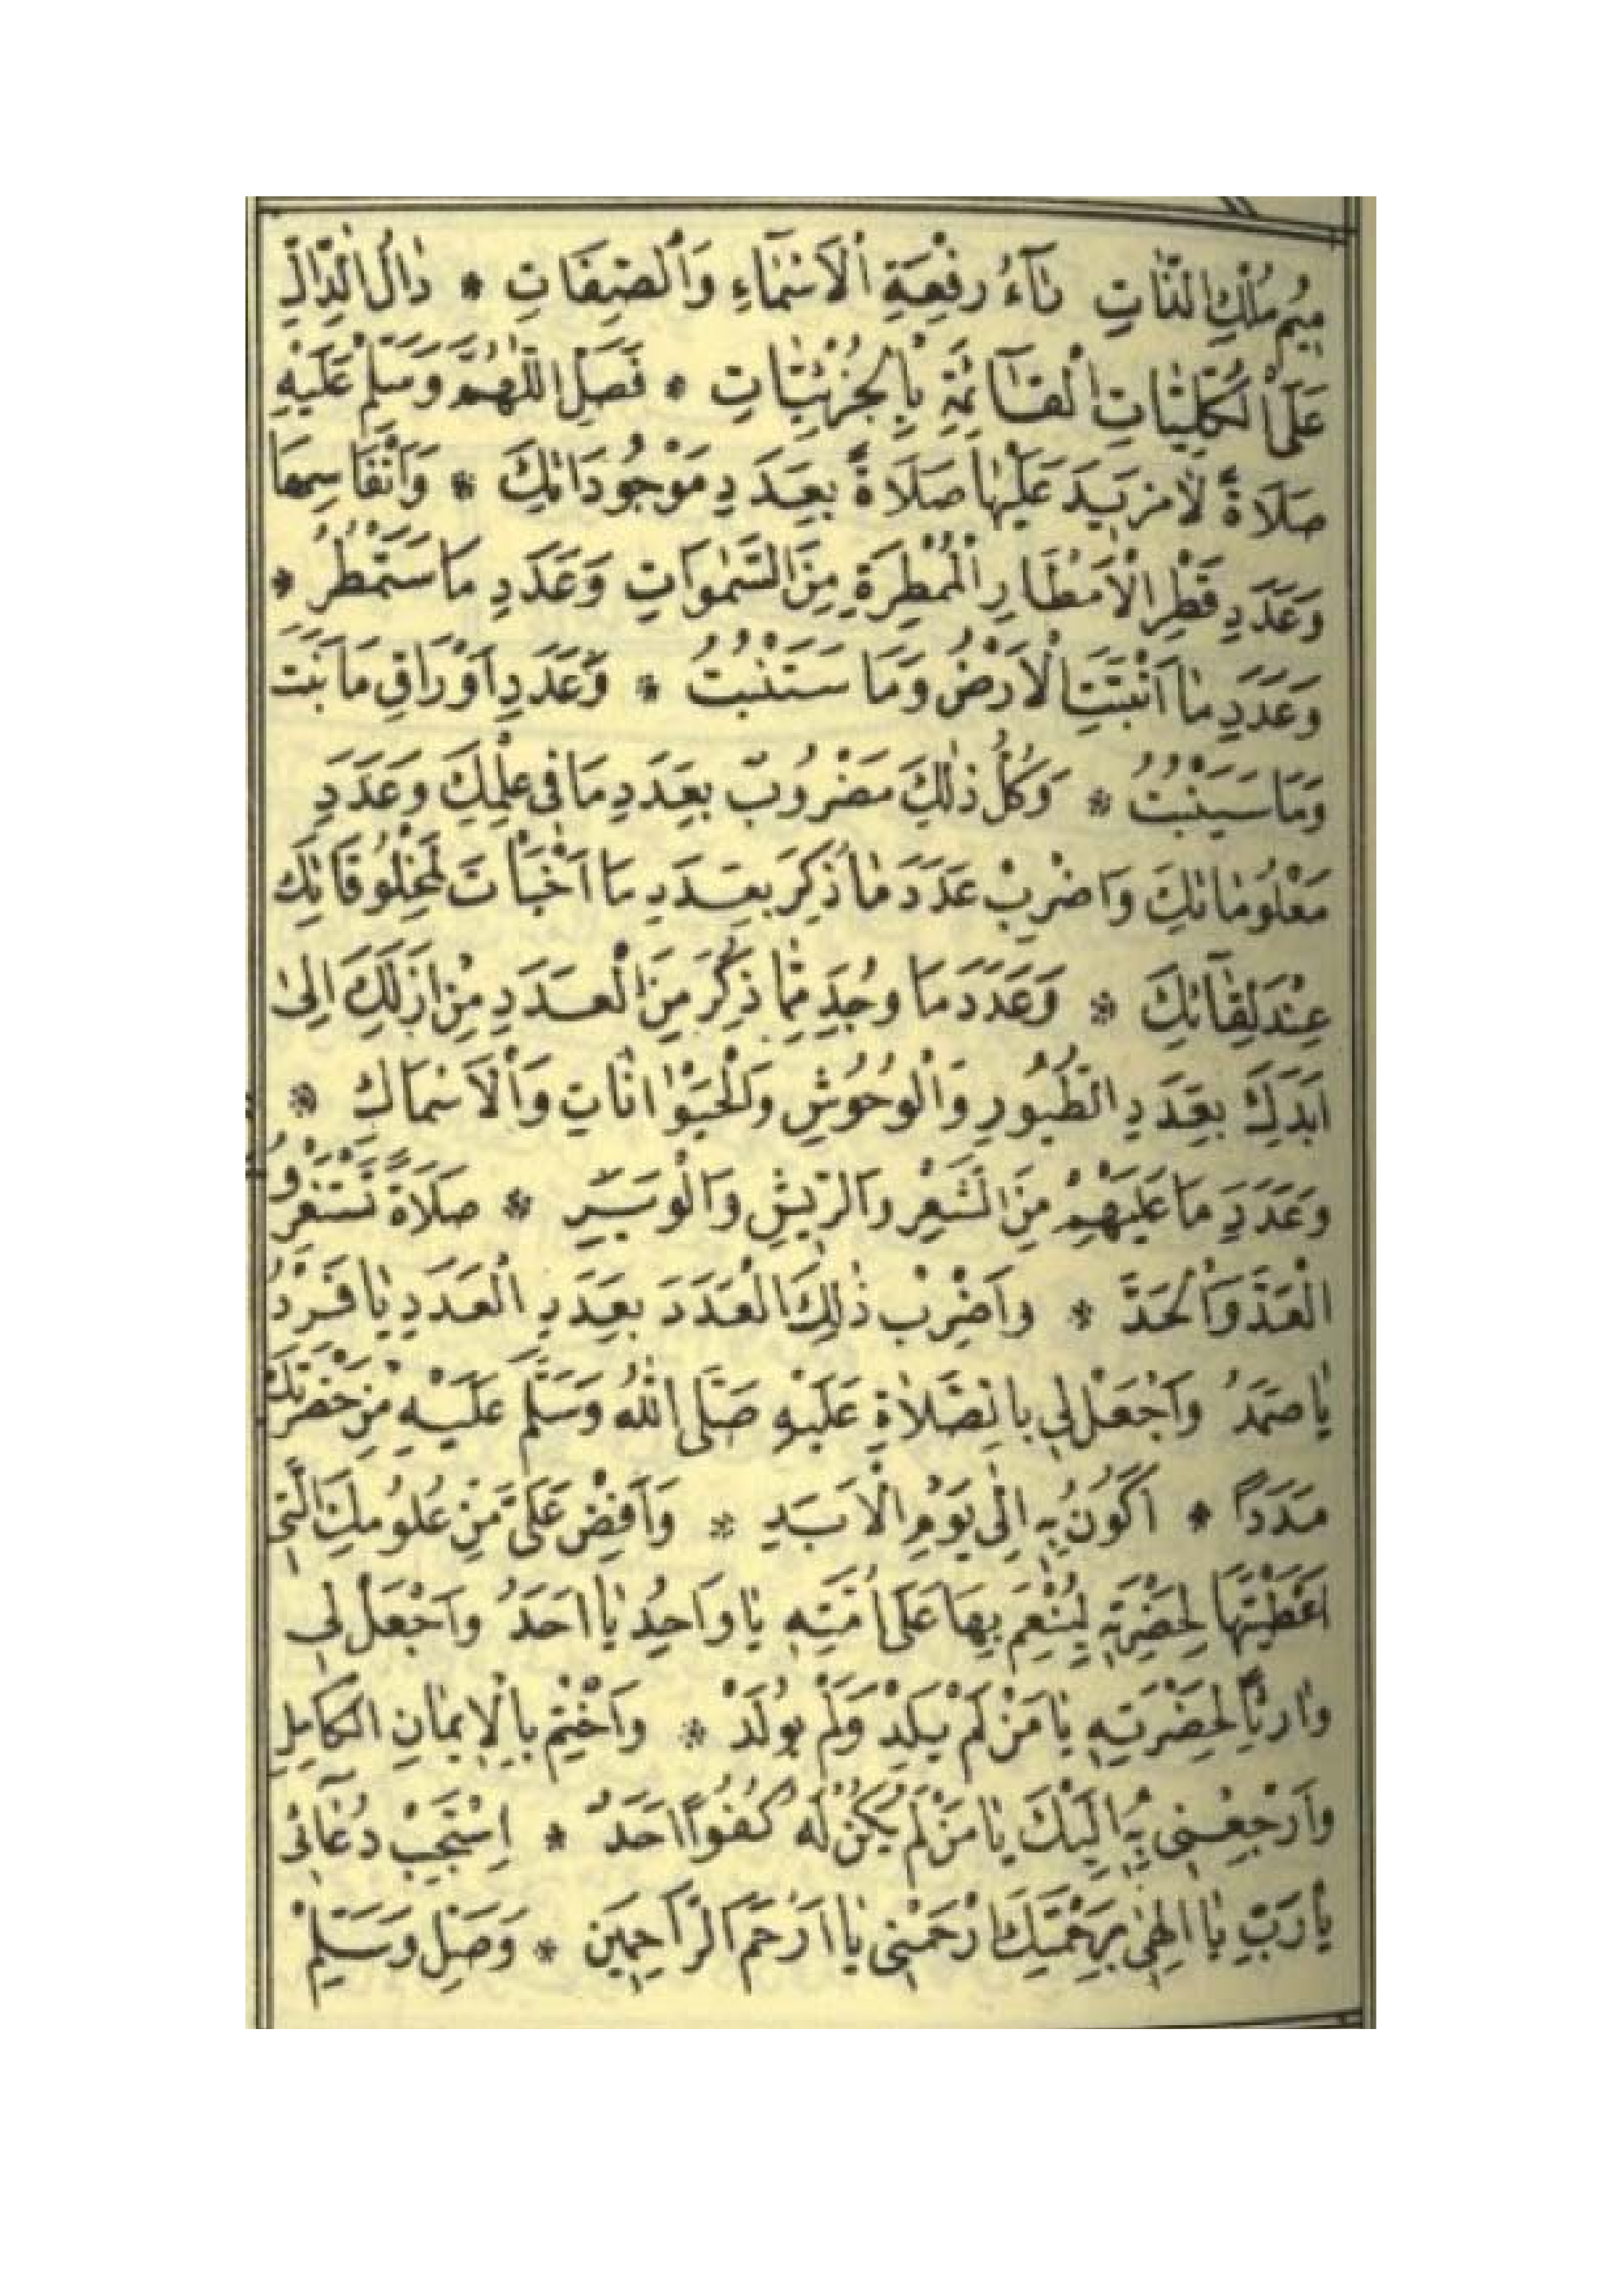 مِيمُ مُلْكِ الذَّاتِ تَآءُ رِفْعَةِ الْاَسْمَآءِ وَالْصِّفَاتِ * دَالُ الدَّالِّ
عَلَى الْكُلِّيَّاتِ الْقَآئِمَةِ بِالْجُزْئِيَّاتِ * فَصَلِّ اللّٰهُمَّ وَسَلِّمْ عَلَيْهِ
صَلَاةً لَامَزِيدَ عَلَيْهَا صَلَاةً بِعَدَدِ مَوْجُودَاتِكَ * وَاَنْفَاسِهَا
وَعَدَدِ قَطْرِ الْاَمْطَارِ الْمُمْطِرَةِ مِنَ السَّمٰوَاتِ وَعَدَدِ مَا سَتَمْطُرُ *
وَعَدَدِ مَا اَنْبَتَتِ الْاَرْضُ وَمَا سَتَنْبُتُ * وَعَدَدِ اَوْرَاقِ مَا نَبَتَ
وَمَا سَيَنْبُتُ * وَكُلُّ ذٰلِكَ مَضْرُوبٌ بِعَدَدِ مَا فِى عِلْمِكَ وَعَدَدِ
مَعْلُومَاتِكَ وَاضْرِبْ عَدَدَ مَا ذُكِرَ بِعَدَدِ مَا اَخْبَأْتَ لِمَخْلُوقَاتِكَ
عِنْدَ لِقَآئِكَ * وَعَدَدَ مَا وُجِدَ مِمَّا ذُكِرَ مِنَ الْعَدَدِ مِنْ اَزَلِكَ اِلَىٰ
اَبَدِكَ بِعَدَدِ الطُّيُورِ وَالْوُحُوشِ وَالْحَيَوَانَاتِ وَالْاَسْمَاكِ *
وَعَدَدِ مَا عَلَيْهِمْ مِنَ الشَّعْرِ وَالرِّيشِ وَالْوَبَرِ * صَلَاةً تَسْتَغْرِقُ
الْعَدَّ وَالْحَدَّ * وَاَضْرِبْ ذٰلِكَ الْعَدَدَ بِعَدَدِ الْعَدَدِ يَا فَرْدُ
يَا صَمَدُ وَاَجْعَلْ لِى بِالصَّلَاةِ عَلَيْهِ صَلَّى اللّٰهُ وَسَلَّمَ عَلَيْهِ مِنْ حَضْرَتِكَ
مَدَدًا * اَكُونُ بِهِ اِلَى يَوْمِ الْاَبَدِ * وَاَفِضْ عَلَىَّ مِنْ عُلُومِكَ الَّتِى
اَعْطَيْتَهَا لِحَضْرَتِهِ لِيُنْعِمَ بِهَا عَلَى اُمَّتِهِ يَا وَاحِدُ يَا اَحَدُ وَاَجْعَلْ لِى
وَارِثًا لِحَضْرَتِهِ يَا مَنْ لَمْ يَلِدْ وَلَمْ يُولَدْ * وَاَخْتِمْ بِالْاِيمَانِ الْكَامِلِ
وَاَرْجِعْنِى بِهِ اِلَيْكَ يَا مَنْ لَمْ يَكُنْ لَهُ كُفُوًا اَحَدٌ * اِسْتَجِبْ دُعَآئِى
يَارَبِّ يَا اِلٰهِى بِرَحْمَتِكَ ارْحَمْنِى يَا اَرْحَمَ الرَّاحِمِينَ * وَصَلِّ وَسَلِّمْ